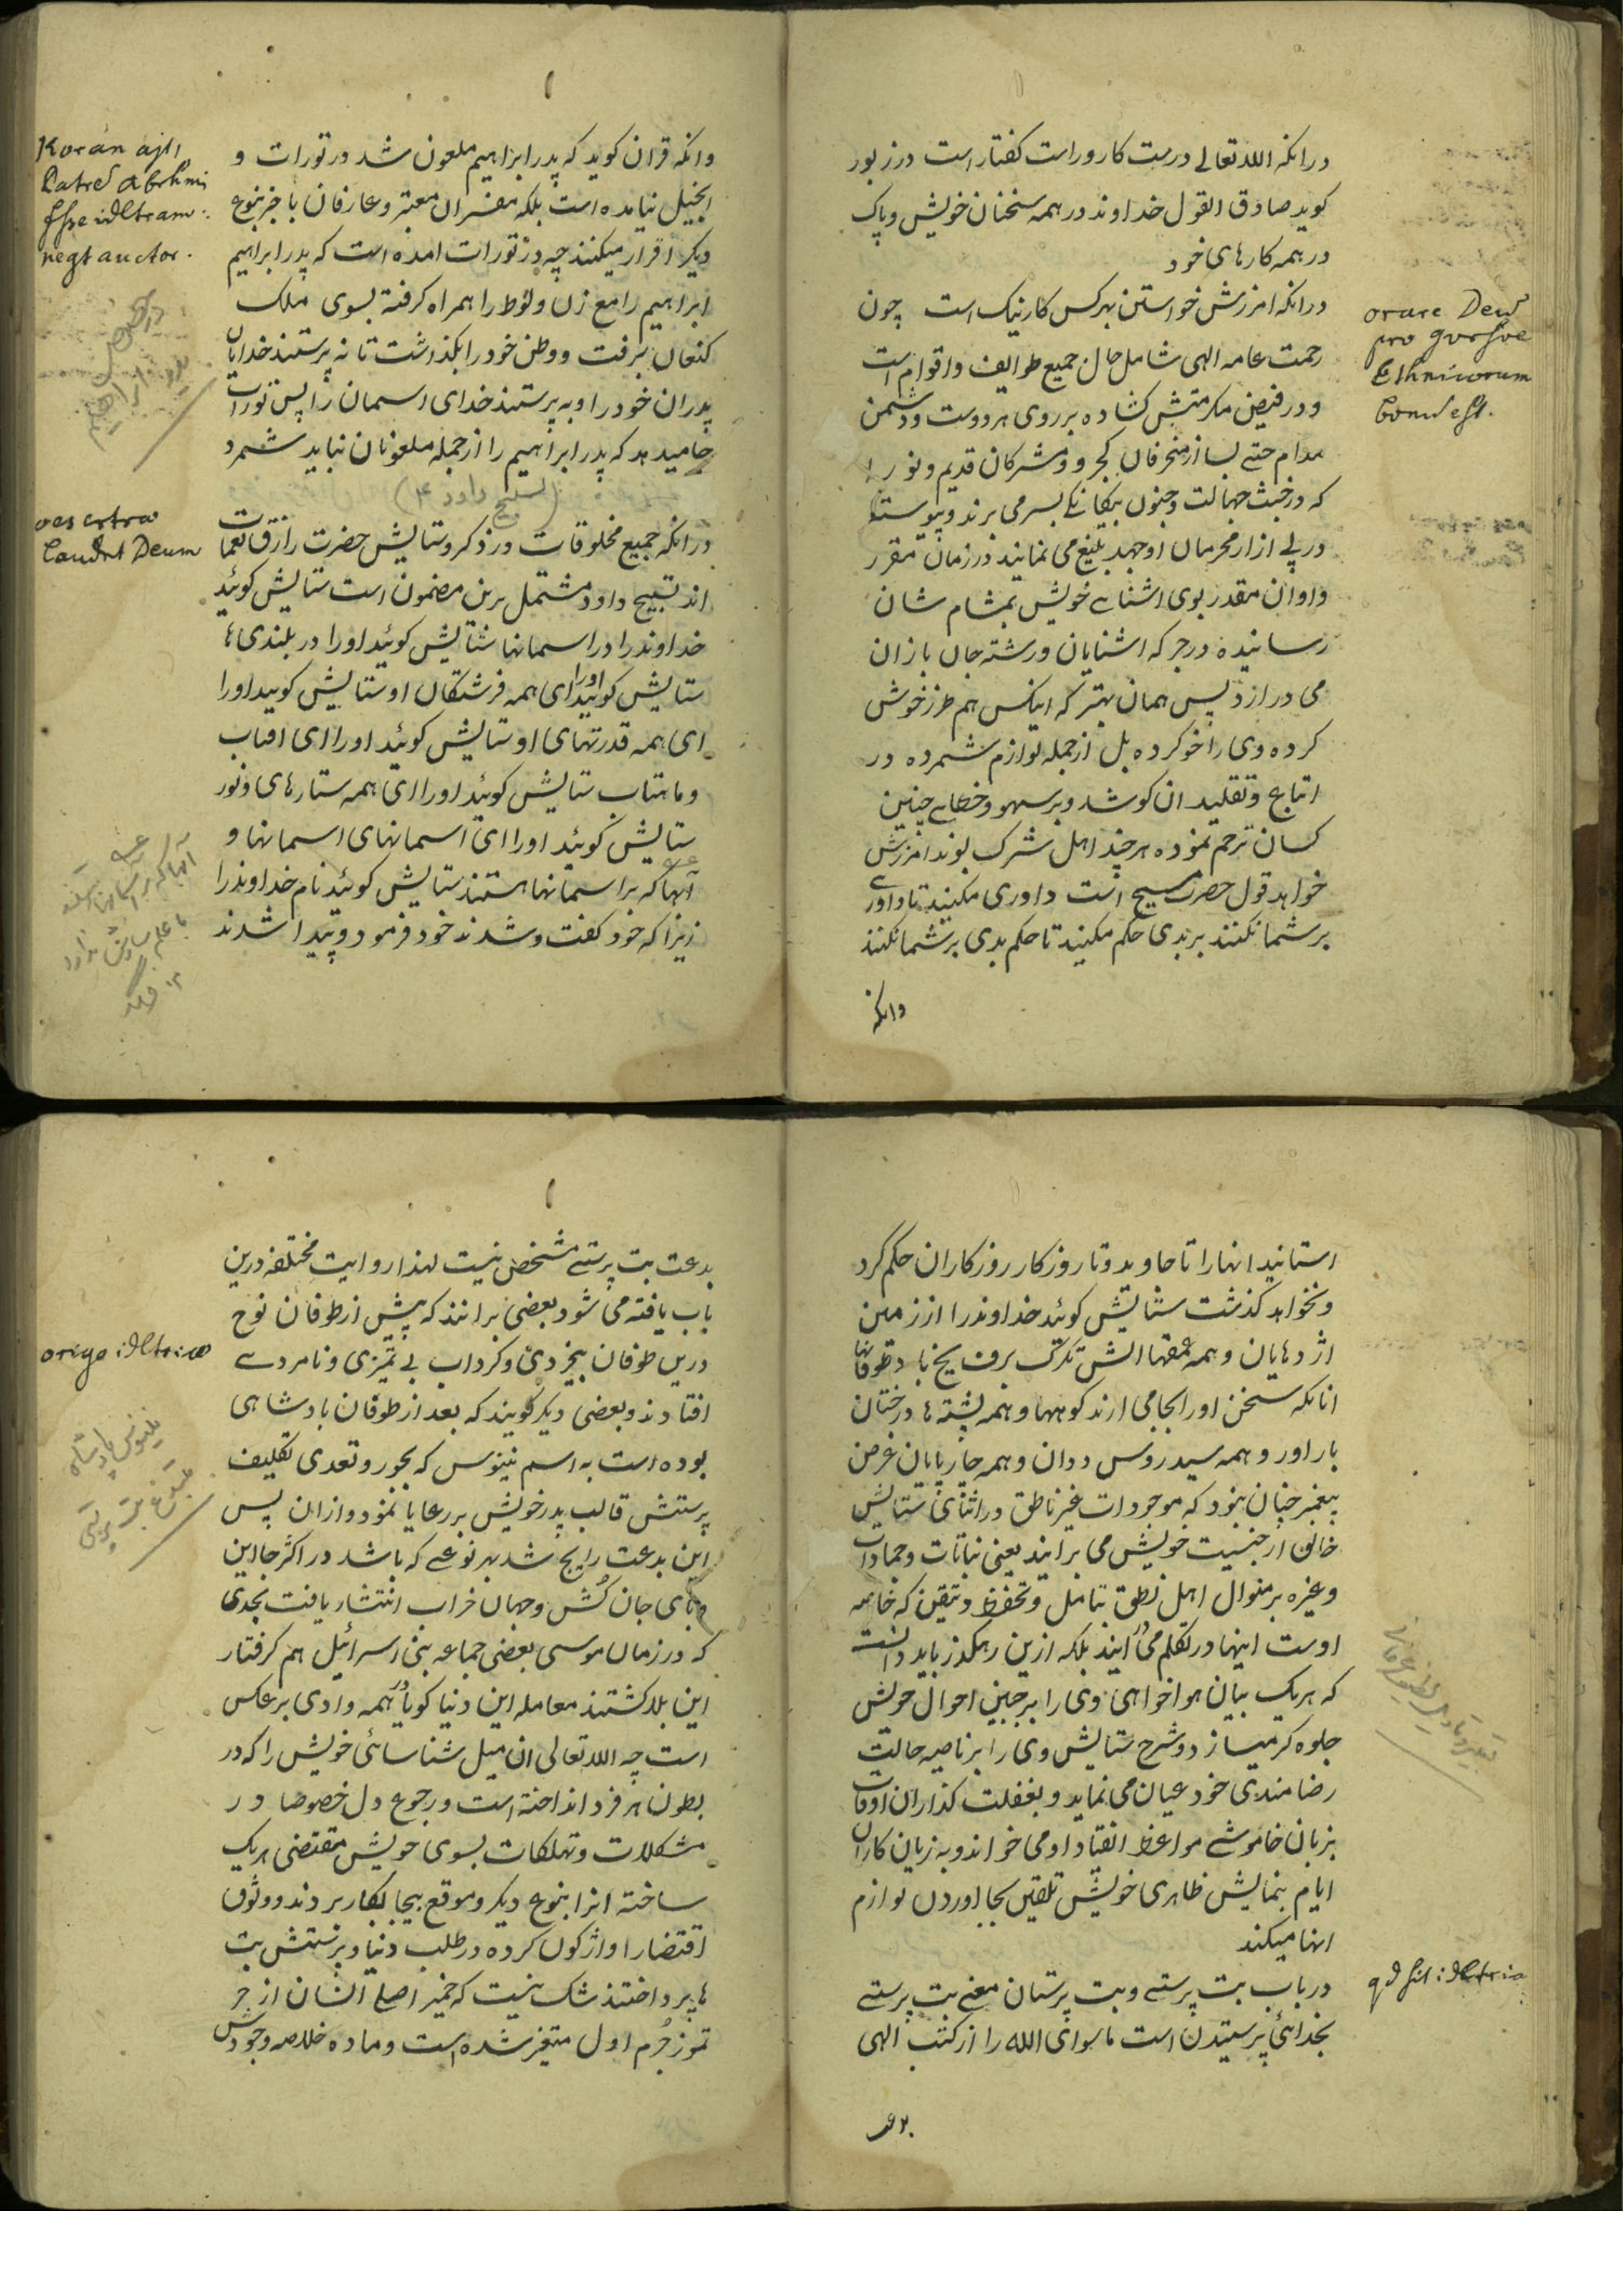 درانکه الله تعالے درست کار و راست کفتار است در زبور
کوید صادق القول خداوند در همه سخنان خویش و پاک
در همه کارهای خود
درانکه امرزش خواستن بهر کس کار نیک است چون
رحمت عامه الهی شامل حال جمیع طوایف و اقوام است
و در فیض مکرمتش کشاده بر روی هر دوست و دشمن
مدام حتے بسا از منحرفان کجرو و مشرکان قدیم و نو را
که در خبث جهالت و جنون بیکانکے بسر می برند و پیوسته
در پے ازار محرمان او جهد بلیغ می نمایند در زمان مقرر
و اوان مقدر بوی اشنایے خویش بمشام شان
رسانیده در جرکه اشنایان و رشته جان بازان
می درارد پس همان بهتر که اینکس هم طرز خوش
کرده وی را خو کرده بل از جمله لوازم شمرده در
اتباع و تقلید ان کوشد و بر سهو و خطاے چنین
کسان ترحم نموده هر چند اهل شرک بوند امرزش
خواهد قول حضرت مسیح است داوری مکنید تا داورے
بر شما نکنند بر بدی حکم مکنید تا حکم بدی بر شما نکنند
وانکه
orare Deu
pro
Ethnicorum
bonu est.
وانکه قران کوید که پدر ابراهیم ملعون شد در تورات و
انجیل نیامده است بلکه مفسران معتبر و عارفان با خبر بنوع
دیکر اقرار میکنند چه در تورات امده است که پدر ابراهیم
ابراهیم را مع زن و لوط را همراه کرفته بسوی ملک
کنعان برفت و وطن خود را بکذاشت تا نه پرستند خدایان
پدران خود را و به پرستند خدای اسمان را پس تورات
جا میدهد که پدر ابراهیم را از جمله ملعونان نباید شمرد
(تسبیح داود ع)
درانکه جمیع مخلوقات در ذکر و ستایش حضرت رازق نعمات
اند تسبیح داود مشتمل برین مضمون است ستایش کوئید
خداوند را در اسمانها ستایش کوئید او را در بلندی ها
ستایش کوئید او را ای همه فرشتکان او ستایش کویید او را
ای همه قدرتهای او ستایش کوئید او را ای افتاب
و ماهتاب ستایش کوئید او را ای همه ستارهای و نور
ستایش کوئید او را ای اسمانهای اسمانها و
آبها که بر اسمانها هستند ستایش کوئید نام خداوند را
زیرا که خود کفت و شدند خود فرمود و پیدا شدند
Koran ajt
Patre Abrhmi
negt auctor.
laudnt Deum
استانید انها را تا جاوید و تا روزکار روزکاران حکم کرد
و نخواهد کذشت ستایش کوئید خداوند را از زمین
اژدهایان و همه عمقها اتش تکرک برف یخ باد طوفانها
انانکه سخن او را بجا می ارند کوهها و همه پشته ها درختان
باراور و همه سیدروس ددان و همه چارپایان غرض
پیغمبر چنان نبود که موجودات غیر ناطق در اثنای ستایش
خالق از جنسیت خویش می برایند یعنی نباتات و جمادات
و غیره بر منوال اهل نطق بتامل و تحفظ و تیقن که خاصه
اوست اینها در تکلم می ایند بلکه ازین رهکذر باید دانست
که هر یک بیان هواخواهی وی را بر جبین احوال خویش
جلوه کر میسازد و شرح ستایش وی را بر ناصیه حالت
رضامندی خود عیان می نماید و بغفلت کذاران اوقات
بزبان خاموشے مواعظ انقیاد او می خواند و به زیان کاران
ایام بنمایش ظاهری خویش تلقین بجا اوردن لوازم
انها میکند
در باب بت پرستے و بت پرستان معنے بت پرستے
بخدائی پرستیدن است ماسوای الله را از کتب الهی
بدعت
qd sit idltria
بدعت بت پرستے مشخص نیست لهذا روایت مختلفه درین
باب یافته می شود بعضی برانند که پیش از طوفان نوح
درین طوفان بیخردی و کرداب بے تمیزی و نامردسے
افتادند و بعضی دیکر کویند که بعد از طوفان بادشاهی
بوده است به اسم نینوس که بجور و تعدی تکلیف
پرستش قالب پدر خویش بر رعایا نمود و ازان پس
این بدعت رایج شد بهر نوعے که باشد در اکثر جا این
وبای جان کُش و جهان خراب انتشار یافت بحدی
که در زمان موسی بعضی جماعه بنی اسرائیل هم کرفتار
این بلا کشتند معامله این دنیا کویا در همه وادی برعکس
است چه الله تعالی ان میل شناسائی خویش را که در
بطون هر فرد انداخته است و رجوع دل خصوصا در
مشکلات و تهلکات بسوی خویش مقتضی هر یک
ساخته انرا بنوع دیکر و موقع بیجا بکار بردند و وثوق
اقتضا را واژکون کرده در طلب دنیا و پرستش بت
ها پرداختند شک نیست که خمیر اصلے انسان از حر
تموز جُرم اول متغیر شده است و ماده خلاصه وجودش
origo idltriæ
نینوس پادشاه
مبتدع بت پرستی